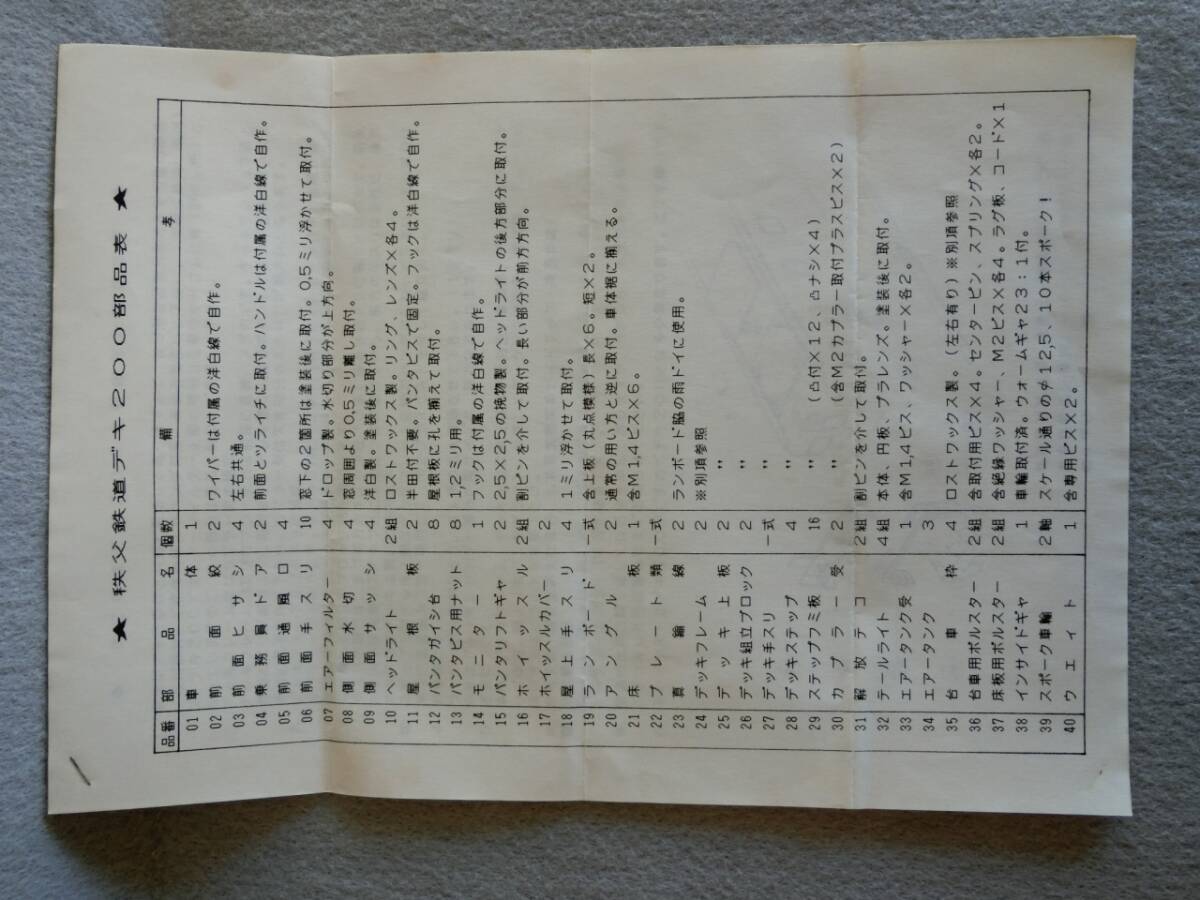 ★ 秩父鉄道デキ200部品表 ★
品番 部品名 個数 備考
01 車体 1
02 前面絞 2 ワイパーは付属の洋白線で自作。
03 前面ヒサシ 4 左右共通。
04 乗務員ドア 2 前面とツライチに取付。ハンドルは付属の洋白線で自作。
05 前面通風口 4
06 前面手スリ 10 窓下の2箇所は塗装後に取付。0,5ミリ浮かせて取付。
07 エアーフィルター 4 ドロップ製。水切り部分が上方向。
08 側面水切 4 窓周囲より0,5ミリ離し取付。
09 側面サッシ 4 洋白製。塗装後に取付。
10 ヘッドライト 2組 ロストワックス製。リング、レンズ×各4。
11 屋根板 2 半田付不要。パンタビスで固定。フックは洋白線で自作。
12 パンタガイシ台 8 屋根板に孔を揃えて取付。
13 パンタビス用ナット 8 1,2ミリ用。
14 モニター 1 フックは付属の洋白線で自作。
15 パンタリフトギヤ 2 2,5×2,5の挽物製。ヘッドライトの後方部分に取付。
16 ホイッスル 2組 割ピンを介して取付。長い部分が前方方向。
17 ホイッスルカバー 2
18 屋上手スリ 4 1ミリ浮かせて取付。
19 ランボード 一式 含上板（丸点模様）長×6。短×2。
20 アングル 2 通常の用い方と逆に取付。車体裾に揃える。
21 床板 1 含M1,4ビス×6。
22 プレート類 一式
23 真鍮線 2 ランボード脇の雨ドイに使用。
24 デッキフレーム 2 ※別項参照
25 デッキ上板 2 〃
26 デッキ組立ブロック 2 〃
27 デッキ手スリ 一式 〃
28 デッキステップ 4 〃
29 ステップフミ板 16 〃 （凸付×12、凸ナシ×4）
30 カプラー受 2 〃 （含M2カプラー取付プラスビス×2）
31 解放テコ 2組 割ピンを介して取付。
32 テールライト 4組 本体、円板、プラレンズ。塗装後に取付。
33 エアータンク受 1 含M1,4ビス、ワッシャー×各2。
34 エアータンク 3
35 台車枠 4 ロストワックス製。（左右有り）※別項参照
36 台車用ボルスター 2組 含取付用ビス×4。センターピン、スプリング×各2。
37 床板用ボルスター 2組 含絶縁ワッシャー、M2ビス×各4。ラグ板、コード×1
38 インサイドギヤ 1 車輪取付済。ウォームギヤ23：1付。
39 スポーク車輪 2軸 スケール通りのφ12,5、10本スポーク！
40 ウェイト 1 含専用ビス×2。